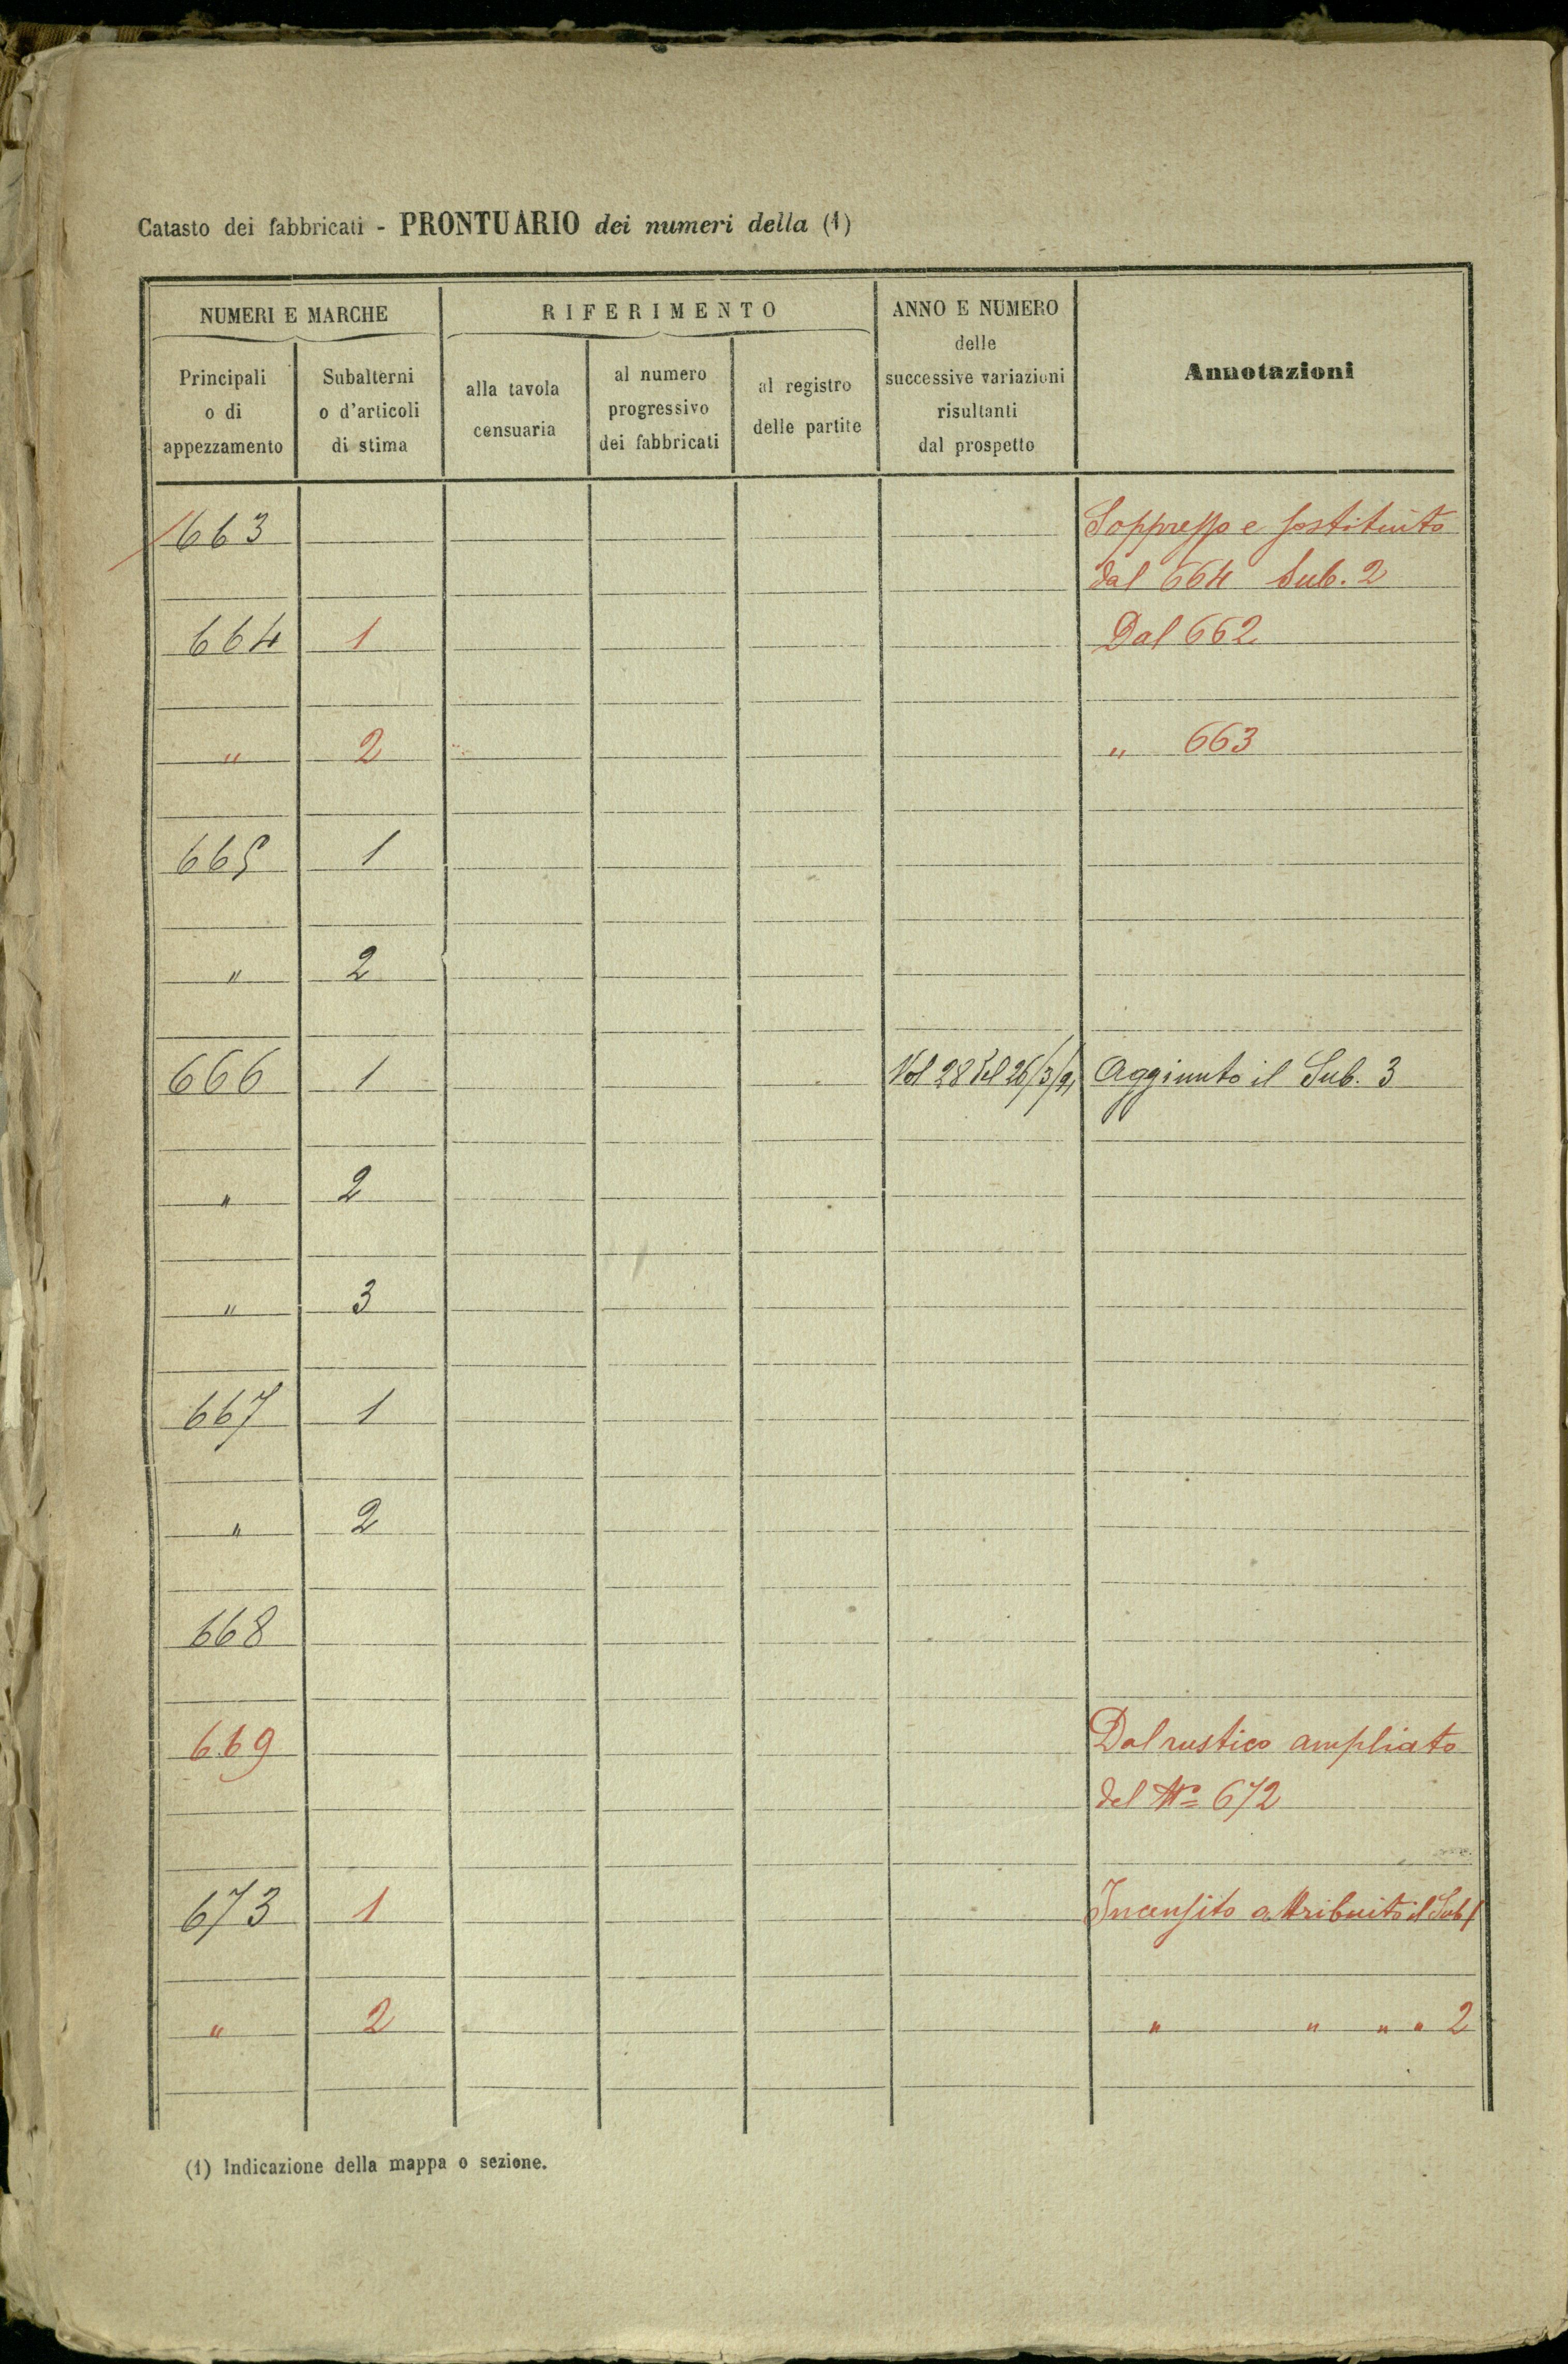 Catasto dei fabbricati - PRONTUARIO dei numeri della (1)
NUMERI E MARCHE
RIFERIMENTO
ANNO E NUMERO
delle
successive variazioni
risultanti
dal prospetto
Annotazioni
Principali
o di
appezzamento
Subalterni
o d'articoli
di stima
alla tavola
censuaria
al numero
progressivo
dei fabbricati
al registro
delle partite
663 Soppresso e sostituito
dal 664 Sub. 2
664 1 Dal 662
" 2 " 663
665 1
" 2
666 1 Vol 28 del 26/3/ Aggiunto il Sub. 3
" 2
" 3
667 1
" 2
668
669 Dal rustico ampliato
del Nº 672
673 1 Incensito attribuito il Sub 1
" 2 " " " " 2
(1) Indicazione della mappa o sezione.